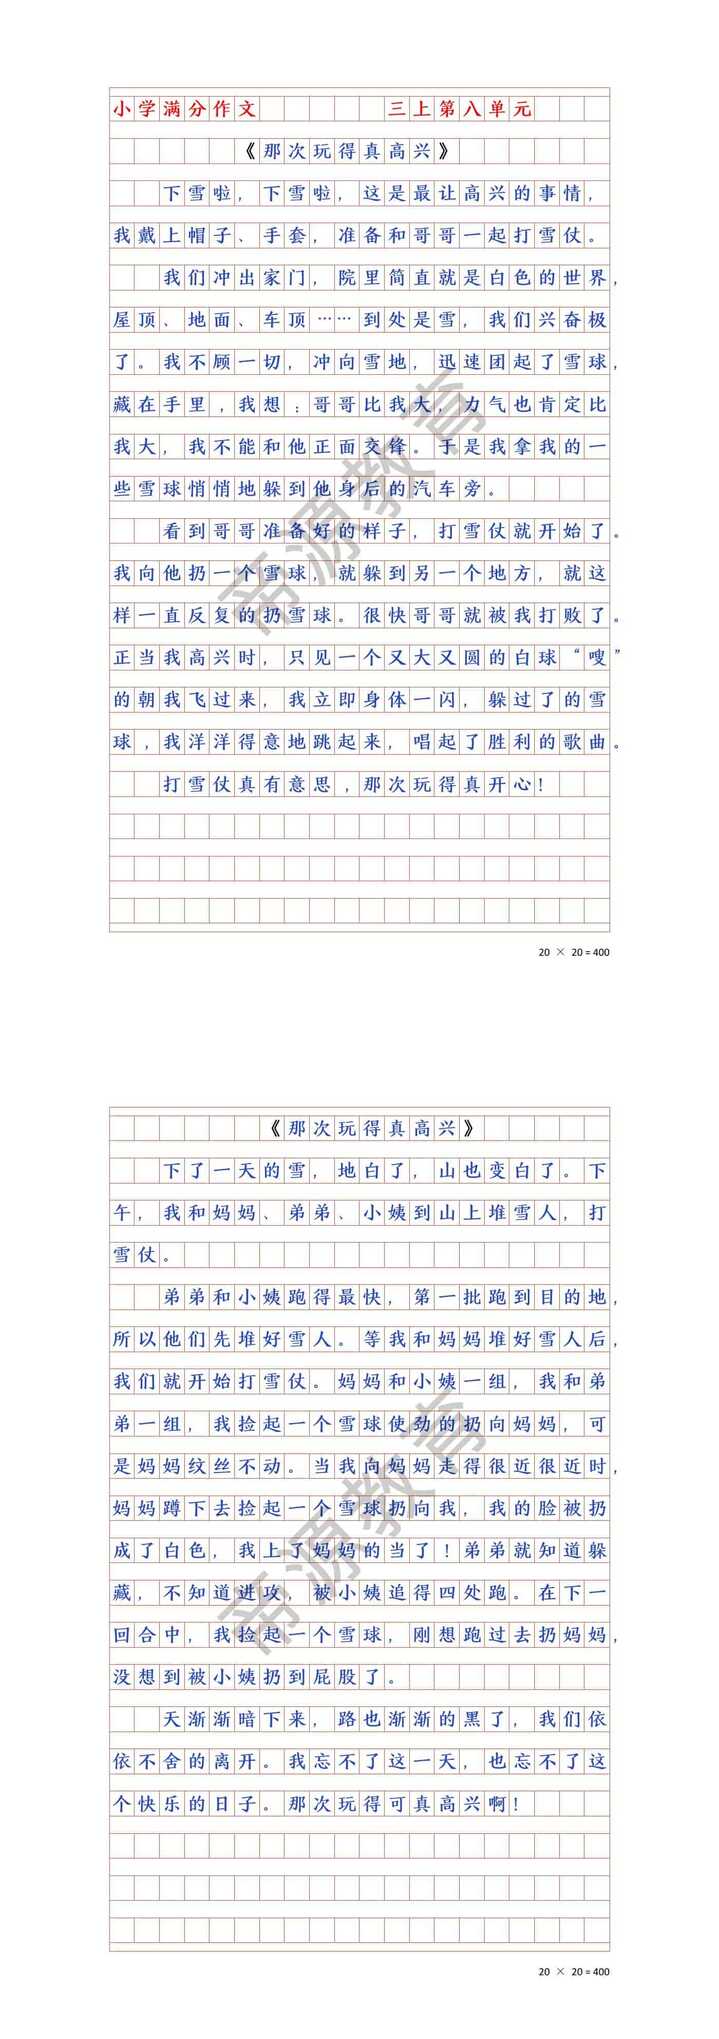 小学满分作文 三上第八单元
《那次玩得真高兴》
下雪啦，下雪啦，这是最让高兴的事情，
我戴上帽子、手套，准备和哥哥一起打雪仗。
我们冲出家门，院里简直就是白色的世界，
屋顶、地面、车顶……到处是雪，我们兴奋极
了。我不顾一切，冲向雪地，迅速团起了雪球，
藏在手里，我想：哥哥比我大，力气也肯定比
我大，我不能和他正面交锋。于是我拿我的一
些雪球悄悄地躲到他身后的汽车旁。
看到哥哥准备好的样子，打雪仗就开始了。
我向他扔一个雪球，就躲到另一个地方，就这
样一直反复的扔雪球。很快哥哥就被我打败了。
正当我高兴时，只见一个又大又圆的白球“嗖”
的朝我飞过来，我立即身体一闪，躲过了的雪
球，我洋洋得意地跳起来，唱起了胜利的歌曲。
打雪仗真有意思，那次玩得真开心！
帝源教育
20 × 20 = 400
《那次玩得真高兴》
下了一天的雪，地白了，山也变白了。下
午，我和妈妈、弟弟、小姨到山上堆雪人，打
雪仗。
弟弟和小姨跑得最快，第一批跑到目的地，
所以他们先堆好雪人。等我和妈妈堆好雪人后，
我们就开始打雪仗。妈妈和小姨一组，我和弟
弟一组，我捡起一个雪球使劲的扔向妈妈，可
是妈妈纹丝不动。当我向妈妈走得很近很近时，
妈妈蹲下去捡起一个雪球扔向我，我的脸被扔
成了白色，我上了妈妈的当了！弟弟就知道躲
藏，不知道进攻，被小姨追得四处跑。在下一
回合中，我捡起一个雪球，刚想跑过去扔妈妈，
没想到被小姨扔到屁股了。
天渐渐暗下来，路也渐渐的黑了，我们依
依不舍的离开。我忘不了这一天，也忘不了这
个快乐的日子。那次玩得可真高兴啊！
帝源教育
20 × 20 = 400